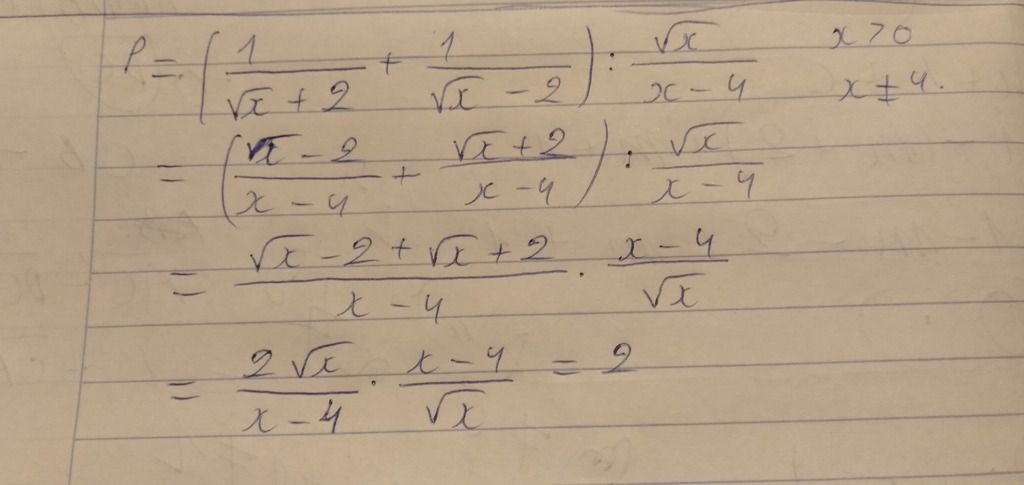 P = ( 1/(√x + 2) + 1/(√x - 2) ) : √x/(x - 4) x > 0 x ≠ 4.
= ( (√x - 2)/(x - 4) + (√x + 2)/(x - 4) ) : √x/(x - 4)
= (√x - 2 + √x + 2)/(x - 4) . (x - 4)/√x
= 2√x/(x - 4) . (x - 4)/√x = 2